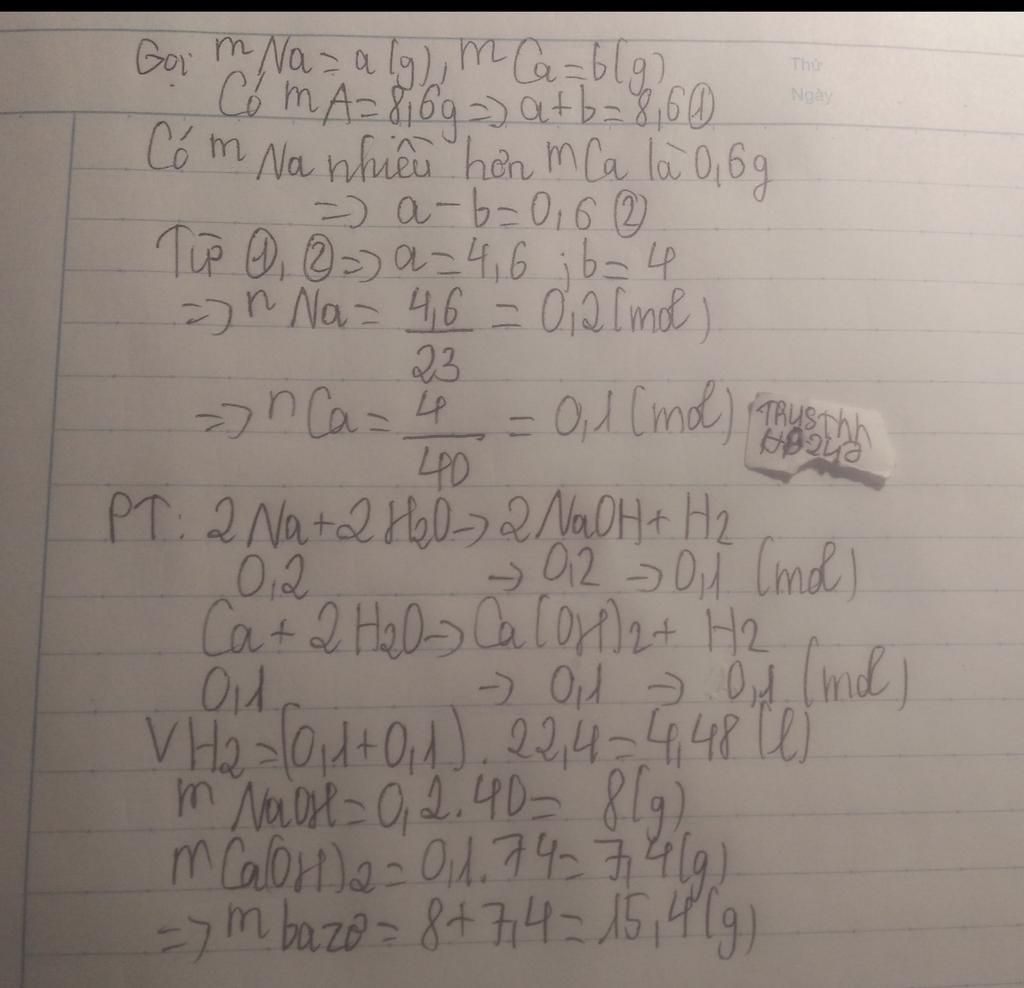 Gọi mNa=a(g), mCa=b(g)
Thứ
Có mA=8,6g=>a+b=8,6①
Ngày
Có mNa nhiều hơn mCa là 0,6g
=> a-b=0,6②
Từ ①,②=>a=4,6 ;b=4
=> nNa= 4,6/23 = 0,2(mol)
=> nCa= 4/40 = 0,1(mol)
PT: 2Na+2H2O->2NaOH+H2
0,2 -> 0,2 ->0,1 (mol)
Ca+2H2O->Ca(OH)2+ H2
0,1 -> 0,1 -> 0,1(mol)
VH2=(0,1+0,1).22,4=4,48(l)
mNaOH=0,2.40= 8(g)
mCa(OH)2=0,1.74=7,4(g)
=> mbazơ=8+7,4=15,4(g)